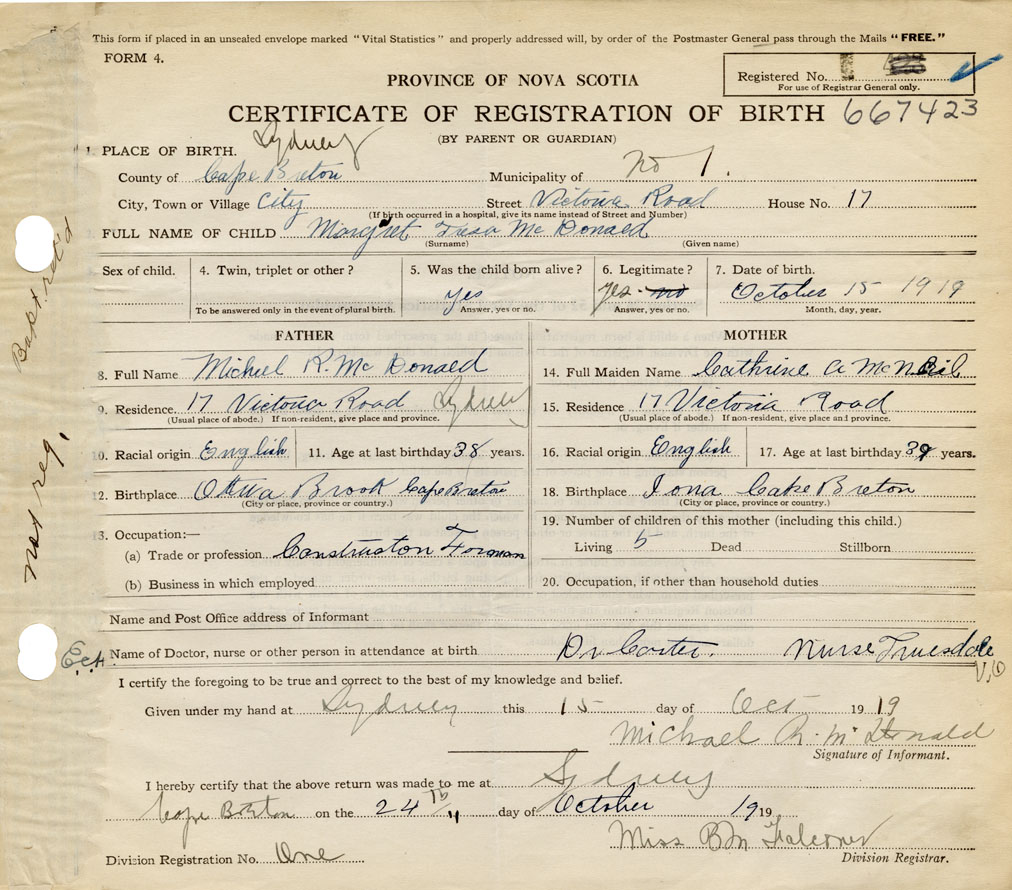 This form if placed in an unsealed envelope marked "Vital Statistics" and properly addressed will, by order of the Postmaster General pass through the Mails "FREE."
FORM 4.
Registered No.
For use of Registrar General only.
PROVINCE OF NOVA SCOTIA
CERTIFICATE OF REGISTRATION OF BIRTH 667423
(BY PARENT OR GUARDIAN)
1. PLACE OF BIRTH. Sydney
County of Cape Breton Municipality of No 1.
City, Town or Village City Street Victoria Road House No. 17
(If birth occurred in a hospital, give its name instead of Street and Number)
FULL NAME OF CHILD Margret McDonald
(Surname) (Given name)
Sex of child. 4. Twin, triplet or other? 5. Was the child born alive? 6. Legitimate? 7. Date of birth.
yes yes no October 15 1919
To be answered only in the event of plural birth. Answer, yes or no. Answer, yes or no. Month, day, year.
FATHER MOTHER
8. Full Name Michael R. McDonald 14. Full Maiden Name Cathrine A McNeil
9. Residence 17 Victoria Road Sydney 15. Residence 17 Victoria Road
(Usual place of abode.) If non-resident, give place and province. (Usual place of abode.) If non-resident, give place and province.
10. Racial origin English 11. Age at last birthday 38 years. 16. Racial origin English 17. Age at last birthday 39 years.
12. Birthplace Ottwa Brook Cape Breton 18. Birthplace Iona Cape Breton
(City or place, province or country.) (City or place, province or country.)
13. Occupation:— 19. Number of children of this mother (including this child.)
(a) Trade or profession Construston Forman Living 5 Dead Stillborn
(b) Business in which employed 20. Occupation, if other than household duties
Name and Post Office address of Informant
Name of Doctor, nurse or other person in attendance at birth Dr Carter. Nurse Truesdale
I certify the foregoing to be true and correct to the best of my knowledge and belief.
Given under my hand at Sydney this 15 day of Oct 1919
Michael R. McDonald
Signature of Informant.
I hereby certify that the above return was made to me at Sydney
Cape Breton on the 24th day of October 1919
Miss B M Falconer
Division Registrar.
Division Registration No. One
not reg.